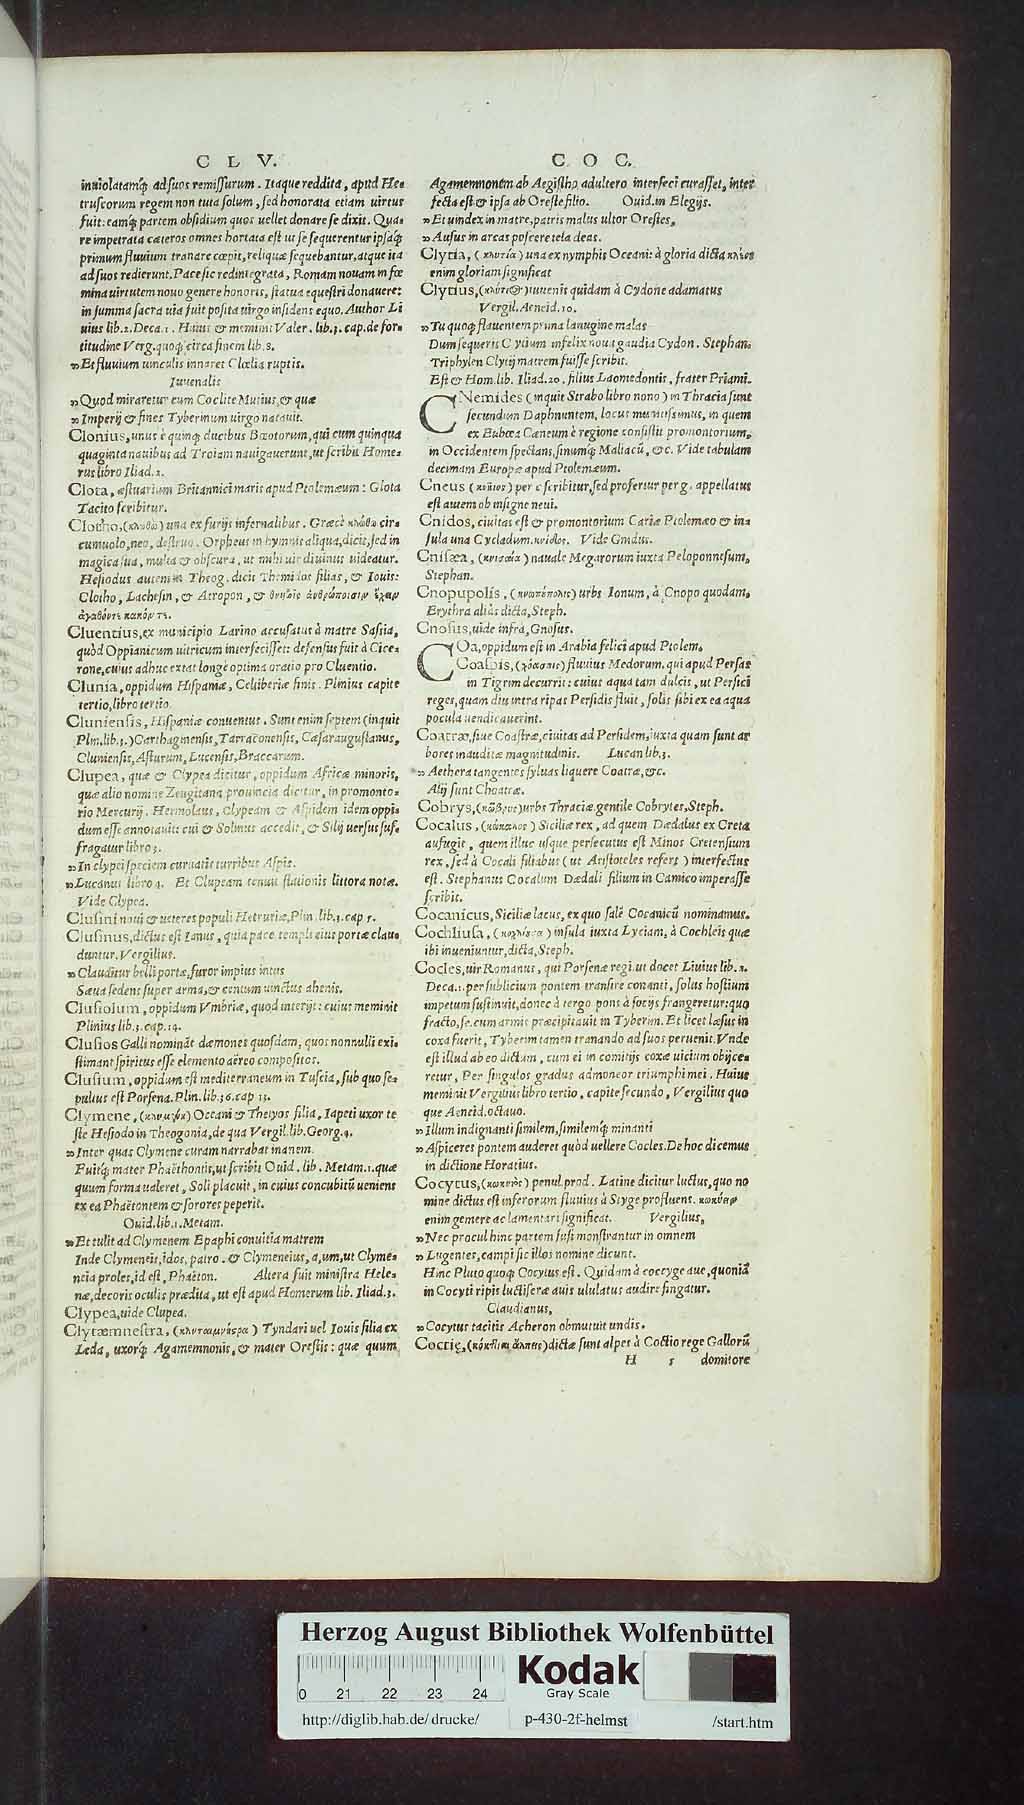 C L V.
inuiolatamq́; ad suos remissurum. Itaque reddita, apud He-
truscorum regem non tuta solum, sed honorata etiam uirtus
fuit: eamq́; partem obsidium quos uellet donare se dixit. Qua-
re impetrata cæteros omnes hortata est ut se sequerentur ipsaq́;
primum fluuium tranare cœpit, reliquæ sequebantur, atque ita
ad suos redierunt. Pace sic redintegrata, Romam nouam in fœ
mina uirtutem nouo genere honoris, statua equestri donauere:
in summa sacra uia fuit posita uirgo insidens equo. Author Li
uius lib.2. Deca.1. Huius & meminit Valer. lib.3. cap. de for-
titudine Verg. quoq; circa finem lib.8.
„Et fluuium uinculis innaret Clœlia ruptis.
Iuuenalis
„Quod miraretur cum Coclite Mutius, & quæ
„Imperij & fines Tyberinum uirgo natauit.
Clonius, unus è quinq; ducibus Bœotorum, qui cum quinqua
quaginta nauibus ad Troiam nauigauerunt, ut scribit Home-
rus libro Iliad.2.
Clota, æstuarium Britannici maris apud Ptolemæum: Glota
Tacito scribitur.
Clotho, (κλωθὼ) una ex furijs infernalibus. Græcè κλώθω cir-
cumuolo, neo, destruo. Orpheus in hymnis aliqua, dicit, sed in
magica sua, multa & obscura, ut nihil uir diuinus uideatur.
Hesiodus autem in Theog. dicit Themidos filias, & Iouis:
Clotho, Lachesin, & Atropon, & θνητοῖς ἀνθρώποισιν ἔχειν
ἀγαθόντε κακόν τε.
Cluentius, ex municipio Larino accusatus à matre Sassia,
quòd Oppianicum uitricum interfecisset: defensus fuit à Cice-
rone, cuius adhuc extat longè optima oratio pro Cluentio.
Clunia, oppidum Hispaniæ, Celtiberiæ finis. Plinius capite
tertio, libro tertio.
Cluniensis, Hispaniæ conuentus. Sunt enim septem (inquit
Plin. lib.3.) Carthaginensis, Tarraconensis, Cæsaraugustanus,
Cluniensis, Asturum, Lucensis, Braccarum.
Clupea, quæ & Clypea dicitur, oppidum Africæ minoris,
quæ alio nomine Zeugitana prouincia dicitur, in promonto-
rio Mercurij. Hermolaus, Clypeam & Aspidem idem oppi-
dum esse annotauit: cui & Solinus accedit, & Silij uersus suf-
fragatur libro 3.
„In clypei speciem curuatis turribus Aspis.
„Lucanus libro 4. Et Clupeam tenuit stationis littora notæ.
Vide Clypea.
Clusini noui & ueteres populi Hetruriæ, Plin. lib.3. cap 5.
Clusinus, dictus est Ianus, quia pace templi eius portæ clau-
duntur. Vergilius.
„Clauditur belli portæ, furor impius intus
Sæua sedens super arma, & centum uinctus ahenis.
Clusiolum, oppidum Vmbriæ, quod interijt: cuius meminit
Plinius lib.3. cap.14.
Clusios Galli nominãt dæmones quosdam, quos nonnulli exi-
stimant spiritus esse elemento aëreo compositos.
Clusium, oppidum est mediterraneum in Tuscia, sub quo se-
pultus est Porsena. Plin. lib.36. cap 13.
Clymene, (κλυμένη) Oceani & Thetyos filia, Iapeti uxor te
ste Hesiodo in Theogonia, de qua Vergil. lib. Georg.4.
„Inter quas Clymene curam narrabat inanem.
Fuitq́; mater Phaëthontis, ut scribit Ouid. lib. Metam.1. quæ
quum forma ualeret, Soli placuit, in cuius concubitũ ueniens
ex ea Phaëtontem & sorores peperit.
Ouid. lib.1. Metam.
„Et tulit ad Clymenem Epaphi conuitia matrem
Inde Clymeneis, idos, patro. & Clymeneius, a, um, ut Clyme-
neia proles, id est, Phaëton. Altera fuit ministra Hele-
næ, decoris oculis prædita, ut est apud Homerum lib. Iliad.3.
Clypea, uide Clupea.
Clytæmnestra, (κλυταιμνήστρα) Tyndari uel Iouis filia ex
Leda, uxorq́; Agamemnonis, & mater Orestis: quæ quum
C O C.
Agamemnonem ab Aegistho adultero interfeci curasset, inter
fecta est & ipsa ab Oreste filio. Ouid. in Elegijs.
„Et uindex in matre, patris malus ultor Orestes,
„Ausus in arcas poscere tela deas.
Clytia, (κλυτία) una ex nymphis Oceani: à gloria dicta κλέος
enim gloriam significat
Clytius, (κλύτιος) iuuenis quidam à Cydone adamatus
Vergil. Aeneid.10.
„Tu quoq; flauentem prima lanugine malas
Dum sequeris Clytium infelix noua gaudia Cydon. Stephan.
Triphylen Clytij matrem fuisse scribit.
Est & Hom. lib. Iliad.20. filius Laomedontis, frater Priami.
CNemides (inquit Strabo libro nono) in Thracia sunt
secundum Daphnuntem, locus munitissimus, in quem
ex Eubœa Cæneum è regione consistit promontorium,
in Occidentem spectans, sinumq; Maliacũ, &c. Vide tabulam
decimam Europæ apud Ptolemæum.
Cneus (κνῆιος) per c scribitur, sed profertur per g. appellatus
est autem ob insigne neui.
Cnidos, ciuitas est & promontorium Cariæ Ptolemæo & in-
sula una Cycladum. κνίδος. Vide Gnidus.
Cnisæa, (κνισαία) nauale Megarorum iuxta Peloponnesum,
Stephan.
Cnopupolis, (κνωπόπολις) urbs Ionum, à Cnopo quodam,
Erythra aliàs dicta, Steph.
Cnosus, uide infrà, Gnosus.
COa, oppidum est in Arabia felici apud Ptolem.
Coaspis, (χόασπις) fluuius Medorum, qui apud Persas
in Tigrim decurrit: cuius aqua tam dulcis, ut Persici
reges, quam diu intra ripas Persidis fluit, solis sibi ex ea aqua
pocula uendicauerint.
Coatræ, siue Coastræ, ciuitas ad Persidem, iuxta quam sunt ar
bores inauditæ magnitudinis. Lucan lib.3.
„Aethera tangentes syluas liquere Coatræ, &c.
Alij sunt Choatræ.
Cobrys, (κῶβρυς) urbs Thraciæ, gentile Cobrytes, Steph.
Cocalus, (κώκαλος) Siciliæ rex, ad quem Dædalus ex Creta
aufugit, quem illuc usque persecutus est Minos Cretensium
rex, sed à Cocali filiabus (ut Aristoteles refert) interfectus
est. Stephanus Cocalum Dædali filium in Camico imperasse
scribit.
Cocanicus, Siciliæ lacus, ex quo salẽ Cocanicũ nominamus.
Cochliusa, (κοχλιοῦσα) insula iuxta Lyciam, à Cochleis quæ
ibi inueniuntur, dicta, Steph.
Cocles, uir Romanus, qui Porsenæ regi, ut docet Liuius lib.2.
Deca.1. per sublicium pontem transire conanti, solus hostium
impetum sustinuit, donec à tergo pons à socijs frangeretur: quo
fracto, se cum armis præcipitauit in Tyberim. Et licet læsus in
coxa fuerit, Tyberim tamen tranando ad suos peruenit. Vnde
est illud ab eo dictum, cum ei in comitijs coxæ uicium obijce-
retur, Per singulos gradus admoneor triumphi mei. Huius
meminit Vergilius libro tertio, capite secundo, Vergilius quo
que Aeneid. octauo.
„Illum indignanti similem, similemq; minanti
„Aspiceres pontem auderet quòd uellere Cocles. De hoc dicemus
in dictione Horatius.
Cocytus, (κωκυτὸς) penul. prod. Latine dicitur luctus, quo no
mine dictus est inferorum fluuius à Styge profluens. κωκύειν
enim gemere ac lamentari significat. Vergilius,
„Nec procul hinc partem fusi monstrantur in omnem
„Lugentes, campi sic illos nomine dicunt.
Hinc Pluto quoq; Cocytus est. Quidam à coccyge aue, quoniã
in Cocyti ripis luctiferæ auis ululatus audire fingatur.
Claudianus,
„Cocytus tacitis Acheron obmutuit undis.
Coctię, (κόκτιαι ἄλπεις) dictæ sunt alpes à Coctio rege Gallorũ
H 5 domitore
Herzog August Bibliothek Wolfenbüttel
0 21 22 23 24
Kodak
Gray Scale
http://diglib.hab.de/drucke/ p-430-2f-helmst /start.htm